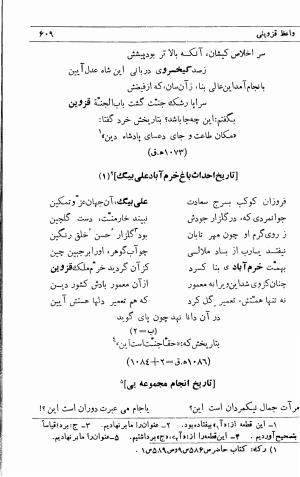 واعظ قزوینی ۶۰۹
سر اخلاص کیشان، آنکـه بالا تر بود پیشش
ز صد کیخسروی دربانی این شاه عدل آیین
بانجام آمد این عالی بنا، زآن‌سان، که از فیضش
سراپا رشک جنّت گشت باب‌الجنّة قزوین
بگفتم: این چه جا باشد؟ بتاریخش خرد گفتا:
«مکان طاعت و جای دعای پادشاه دین»۱
(۱۰۷۳ه‍.ق)
[تاریخ احداث باغ خرم‌آباد علی بیگ]۲(۱)
فروزان کوکب بـرج سعادت علی‌بیگ، آن جهان عزّ و تمکین
جوانمردی که، در گلزار جودش نبیند خار منّت، دست گلچین
ز روی گرم او چون مهر تابان بود گلزار حسن خلق رنگین
نیفتـد یـارب از بـاد ملالـی چو آب گوهر، او را بر جبین چین
بهمّت خرم‌آباد ی بنا کـرد کز آن گردید خرّم ملک قزوین
چنان کز وی شد این ویرانه معمور از آن معمور بادش کشور دیـن
نه تنها همّتش، تعمیر گل کرد که هم تعمیر دلها هستش آیین
در آن دانا نهد چون پای گوید
(ب=۲)
بتاریخش که: «حقّا جنّت است این»۴
(۱۰۸۶ه‍.ق=۲+۱۰۸۴)
[تاریخ انجام مجموعه یی]۵
مرآت جمال نیکمردان است این؟ یا جام می عبرت دوران است این ؟!
۱ـ این قطعه از: «آ»، بیفتاده بود. ۲ـ عنوان را ما برنهادیم. ۳ـ ج: برد؛ قیاساً
بتصحیح آوردیم. ۴ـ این قطعه از: «آ»، «ج» برداشتیم. ۵ـ عنوان را ما برنهادیم.
۱) رک: کتاب حاضر ص۵۸۶